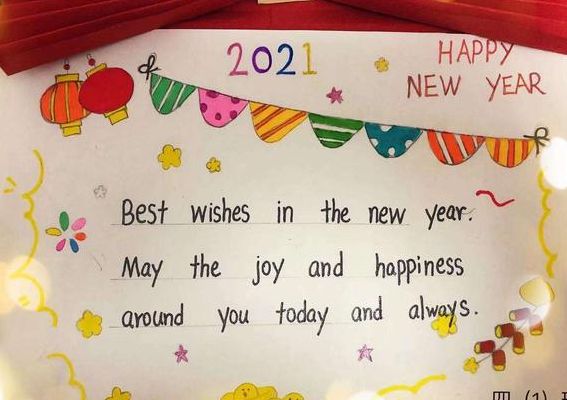 2021
HAPPY
NEW YEAR
Best wishes in the new year.
May the joy and happiness
around you today and always.
四 (1)